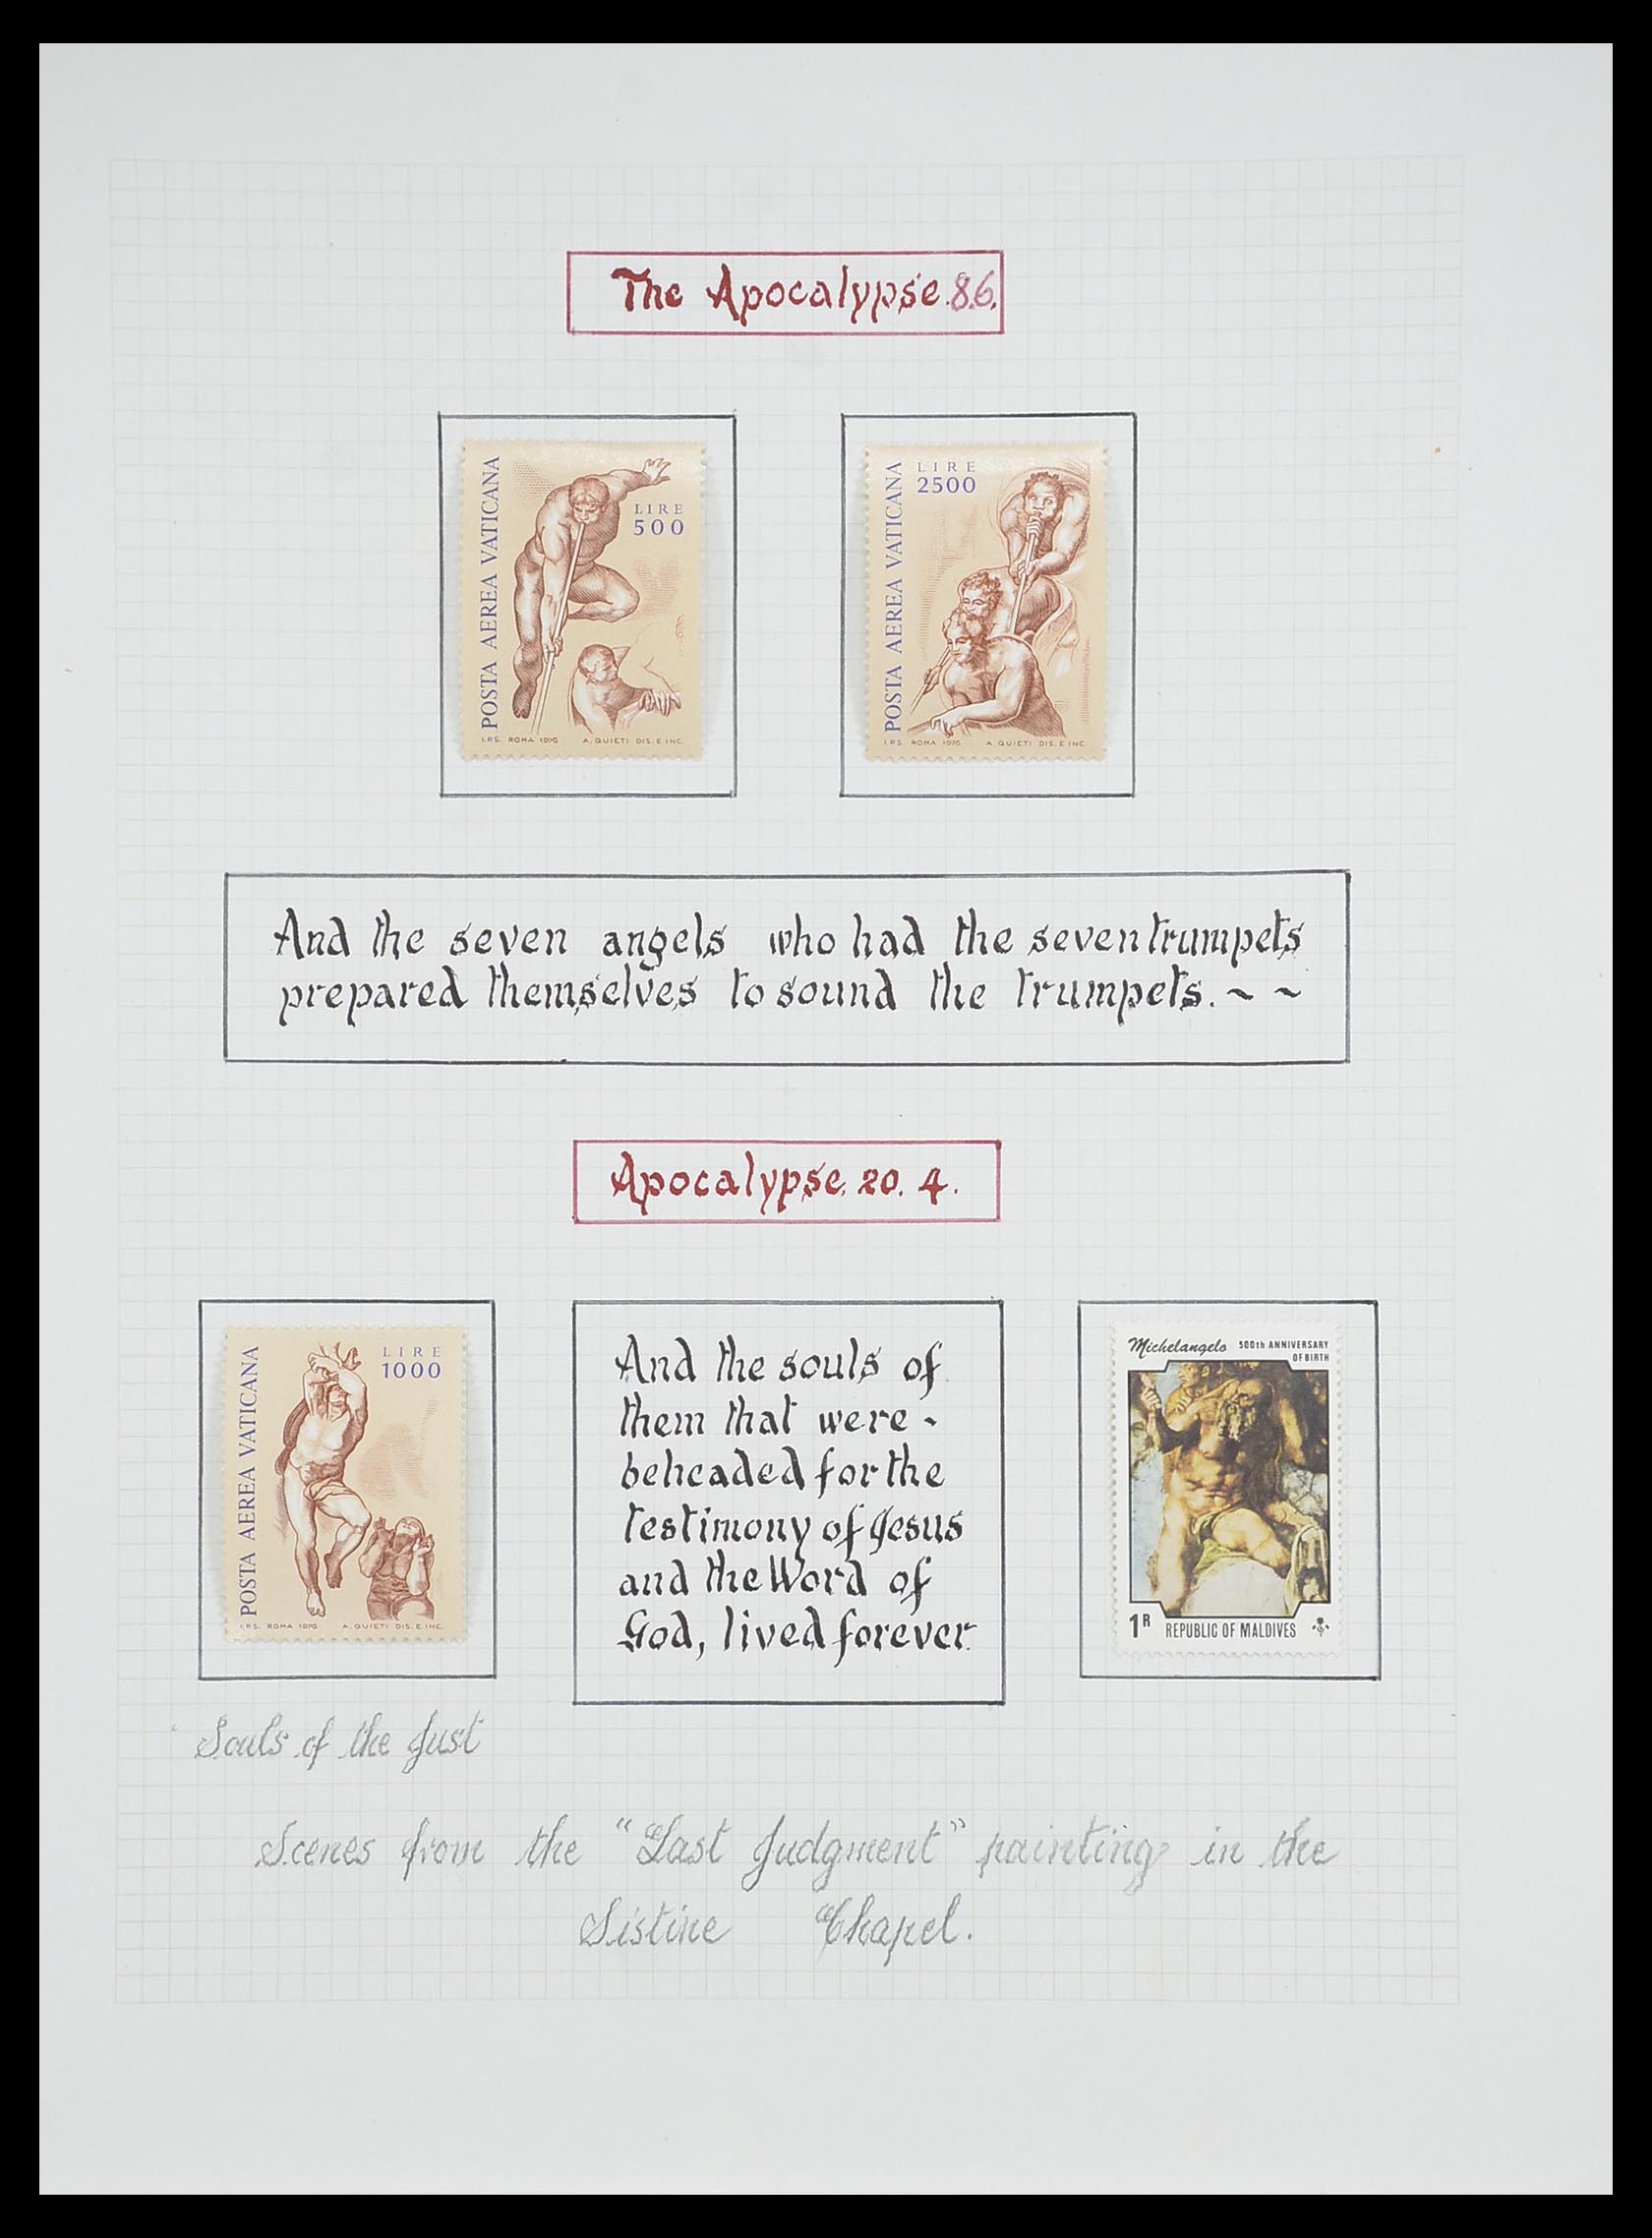 The Apocalypse. 8.6.
POSTA AEREA VATICANA
LIRE
500
I.P.S. ROMA 1976 A. QUIETI DIS. E INC.
POSTA AEREA VATICANA
LIRE
2500
I.P.S. ROMA 1976 A. QUIETI DIS. E INC.
And the seven angels who had the seven trumpets
prepared themselves to sound the trumpets. ~ ~
Apocalypse. 20. 4.
POSTA AEREA VATICANA
LIRE
1000
I.P.S. ROMA 1976 A. QUIETI DIS. E INC.
And the souls of
them that were -
beheaded for the
testimony of Jesus
and the Word of
God, lived forever.
Michelangelo 500th ANNIVERSARY
OF BIRTH
1R REPUBLIC OF MALDIVES
Souls of the Just
Scenes from the "Last Judgment" painting in the
Sistine Chapel.